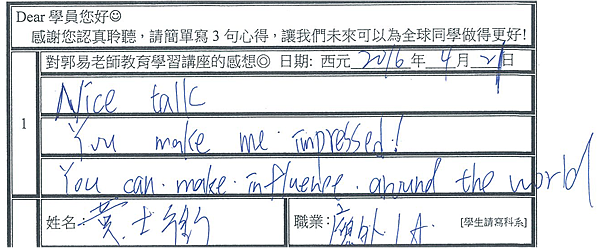 Dear 學員您好☺
感謝您認真聆聽，請簡單寫 3 句心得，讓我們未來可以為全球同學做得更好!
對郭易老師教育學習講座的感想◎ 日期: 西元 2016 年 4 月 21 日
1
Nice talk
You make me impressed!
You can make influence around the world
姓名: 黃士 職業: 應外 1A [學生請寫科系]